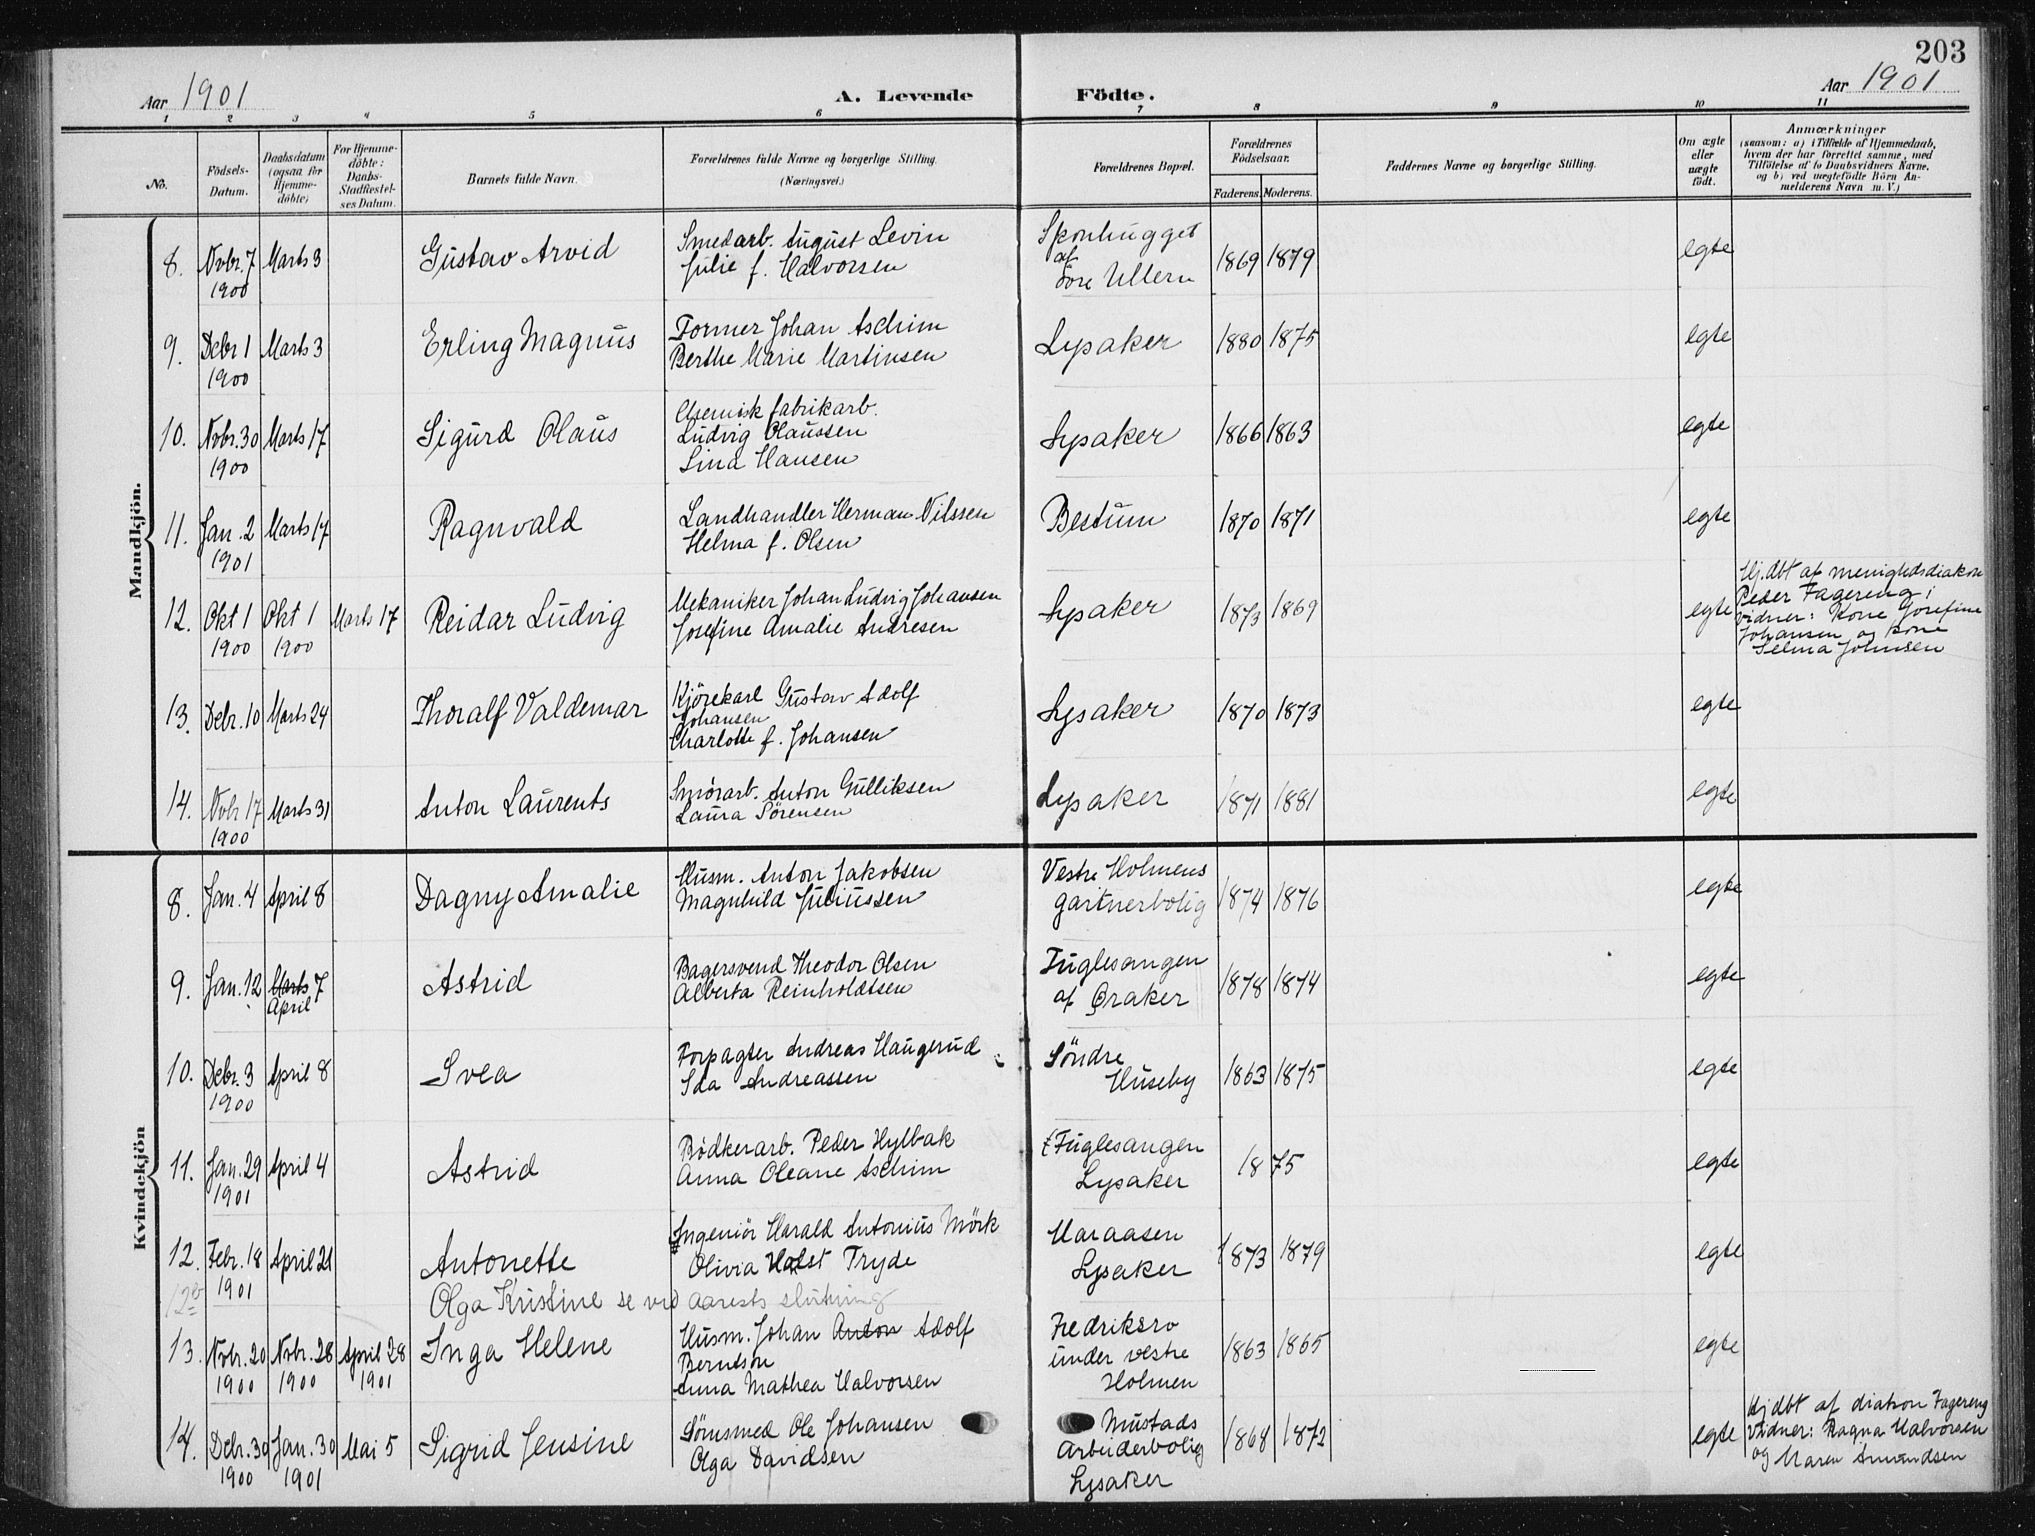 203
Aar 1901
A. Levende Födte.
Aar 1901
1 2 3 4 5 6 7 8 9 10 11
No.
Födsels-Datum.
Daabsdatum (ogsaa for Hjemme-döbte)
For Hjemme-döbte: Daabs-Stadfæstel-ses Datum.
Barnets fulde Navn.
Forældrenes fulde Navne og borgerlige Stilling. (Næringsvei.)
Forældrenes Bopæl.
Forældrenes Födselsaar.
Faderens. Moderens.
Faddernes Navne og borgerlige Stilling.
Om ægte eller uægte født.
Anmærkninger
(saasom: a) i Tilfælde af Hjemmedaab, hvem der har forrettet samme, med Tilföielse af to Daabsvidners Navne, og b) ved uægtefödte Börn An-melderens Navn m. V.)
Mandkjön.
8. Novbr. 7 1900 Marts 3 Gustav Arvid Smedarb. August Levin
Julie f. Halvorsen Sponhugget af Øvre Ullern 1869 1879 egte
9. Debr 1 1900 Marts 3 Erling Magnus Former Johan Aschim
Berthe Marie Martinsen Lysaker 1880 1875 egte
10. Novbr. 30 1900 Marts 17 Sigurd Olaus Chemisk fabrikarb.
Ludvig Olaussen
Lina Hansen Lysaker 1866 1863 egte
11. Jan. 2 1901 Marts 17 Ragnvald Landhandler Herman Nilssen
Helma f. Olsen Bestum 1870 1871 egte
12. Okt 1 1900 Okt 1 1900 Marts 17 Reidar Ludvig Mekaniker Johan Ludvig Johansen
Josefine Amalie Andresen Lysaker 1873 1869 egte
Hj.dbt af menighedsdiakon
Peder Fagereng;
vidner: Kone Josefine
Johansen og kone
Selma Johnsen
13. Debr. 10 Marts 24 Thoralf Valdemar Kjörekarl Gustav Adolf
Johansen
Charlotte f. Johansen Lysaker 1870 1873 egte
14. Novbr 17 1900 Marts 31 Anton Laurents Smörarb. Anton Gulliksen
Laura Sörensen Lysaker 1871 1881 egte
Kvindekjön
8. Jan. 4 April 8 Dagny Amalie Husm. Anton Jakobsen
Magnhild Juliussen Vestre Holmens gartnerbolig 1874 1876 egte
9. Jan. 12 Marts 7 April Astrid Bagersvend Theodor Olsen
Alberta Reinholdtsen Fuglesangen af Øraker 1878 1874 egte
10. Debr. 3 1900 April 8 Svea Forpagter Andreas Haugerud
Ida Andreassen Söndre Huseby 1863 1875 egte
11. Jan. 29 1901 April 4 Astrid Bödkerarb. Peder Hylbak
Anna Oleane Aschim Fuglesangen Lysaker 1875 egte
12. Febr. 18 1901 April 21 Antonette Ingeniör Harald Antonius Mörk
Olivia Holst Tryde Maraasen Lysaker 1873 1879 egte
12b Olga Kristine se ved aarets slutning
13. Novbr. 20 1900 Novbr. 28 1900 April 28 1901 Inga Helene Husm. Johan Anton Adolf
Berntsen
Anna Mathea Halvorsen Fredriksro under vestre Holmen 1863 1865 egte
14. Debr. 30 1900 Jan. 30 1901 Mai 5 Sigrid Jensine Sömsmed Ole Johansen
Olga Davidsen Mustads Arbeiderbolig Lysaker 1868 1872 egte
Hj dbt af diakon Fagereng
Vidner: Ragna Halvorsen
og Maren Amundsen